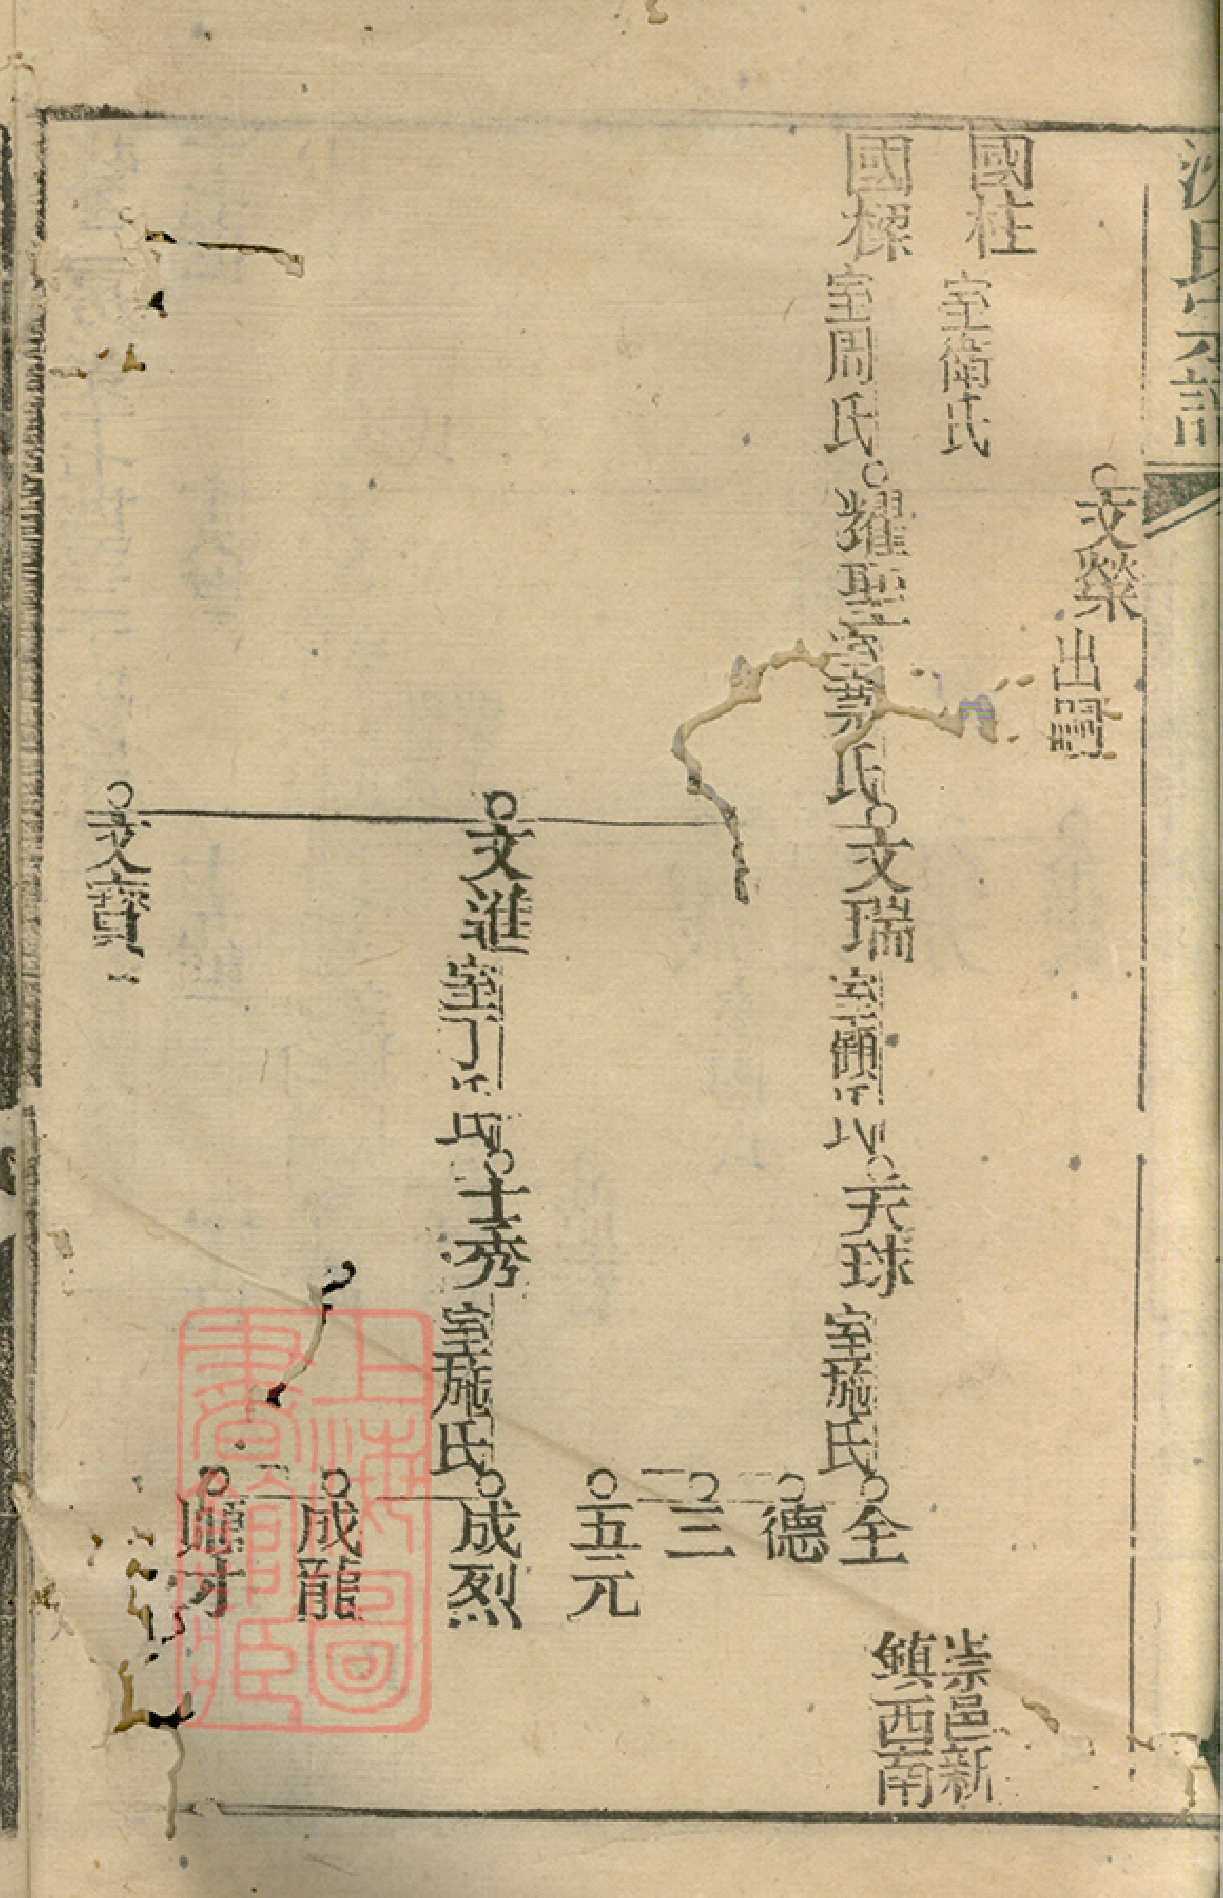 沈氏
文榮 出嗣
國柱 室衛氏
國樑 室周氏
耀聖 室蔡氏
文瑞 室顧氏
天球 室施氏
全
崇邑新
鎮西南
德
三
五元
文進 室丁氏
士秀 室施氏
成烈
成龍
文寶
上海圖
書館藏